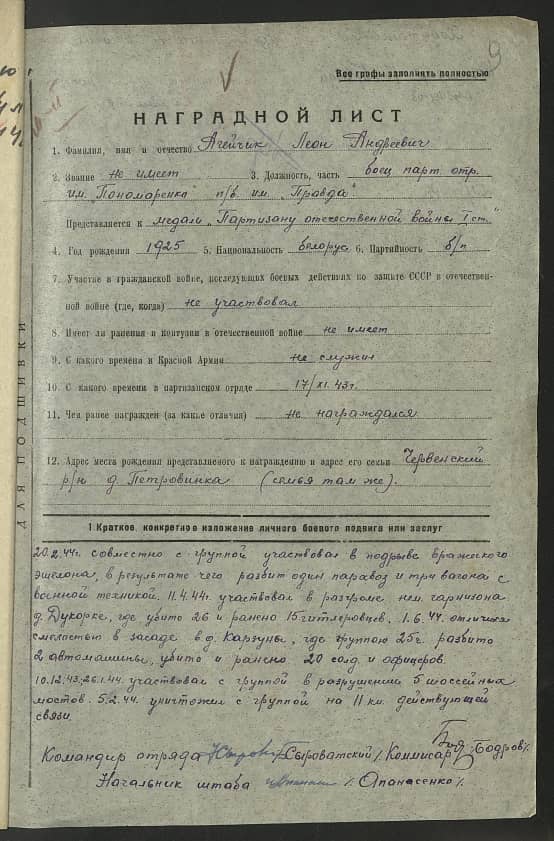 9
Все графы заполнять полностью
НАГРАДНОЙ ЛИСТ
1. Фамилия, имя и отчество Агейчик Леон Андреевич
2. Звание не имеет 3. Должность, часть боец парт. отр.
им. Пономаренко п/б. им. „Правда“
Представляется к медали „Партизану отечественной войны I ст.“
4. Год рождения 1925 5. Национальность белорус 6. Партийность б/п
7. Участие в гражданской войне, последующих боевых действиях по защите СССР и отечествен-
ной войне (где, когда) не участвовал
8. Имеет ли ранения и контузии в отечественной войне не имеет
9. С какого времени в Красной Армии не служил
10. С какого времени в партизанском отряде 17/XI.43г.
11. Чем ранее награжден (за какие отличия) не награждался
12. Адрес места рождения представляемого к награждению и адрес его семьи Червенский
р/н д. Петровинка (семья там же).
ДЛЯ ПОДШИВКИ
1 Краткое, конкретное изложение личного боевого подвига или заслуг
20.2.44г. совместно с группой участвовал в подрыве вражеского
эшелона, в результате чего разбит один паравоз и три вагона с
военной техникой. 11.4.44г. участвовал в разгроме нем. гарнизона
д. Дукорке, где убито 26 и ранено 15 гитлеровцев. 1.6.44г. отличился
смелостью в засаде в д. Карзуны, где группою 25ч. разбито
2 автомашины, убито и ранено 20 солд. и офицеров.
10.12.43; 26.1.44г. участвовал с группой в разрушении 5 шоссейных
мостов. 5.2.44 уничтожил с группой на 11 км. действующей
связи.
Командир отряда /Сыроватский/ Коммисар /Бодров/
Начальник штаба /Опанасенко/